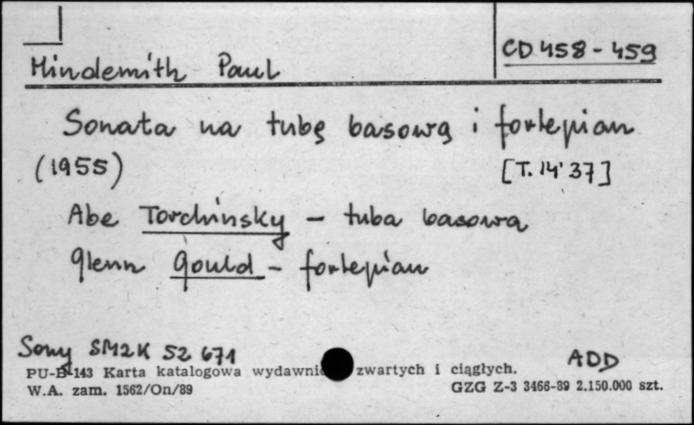 CD 458 - 459
Hindemith Paul
Sonata na tubę basową i fortepian
(1955) [T. 14'37]
Abe Torchinsky - tuba basowa
Glenn Gould - fortepian
Sony SM2K 52 671 ADD
PU-B-143 Karta katalogowa wydawni zwartych i ciągłych.
W.A. zam. 1562/On/89 GZG Z-3 3466-89 2.150.000 szt.